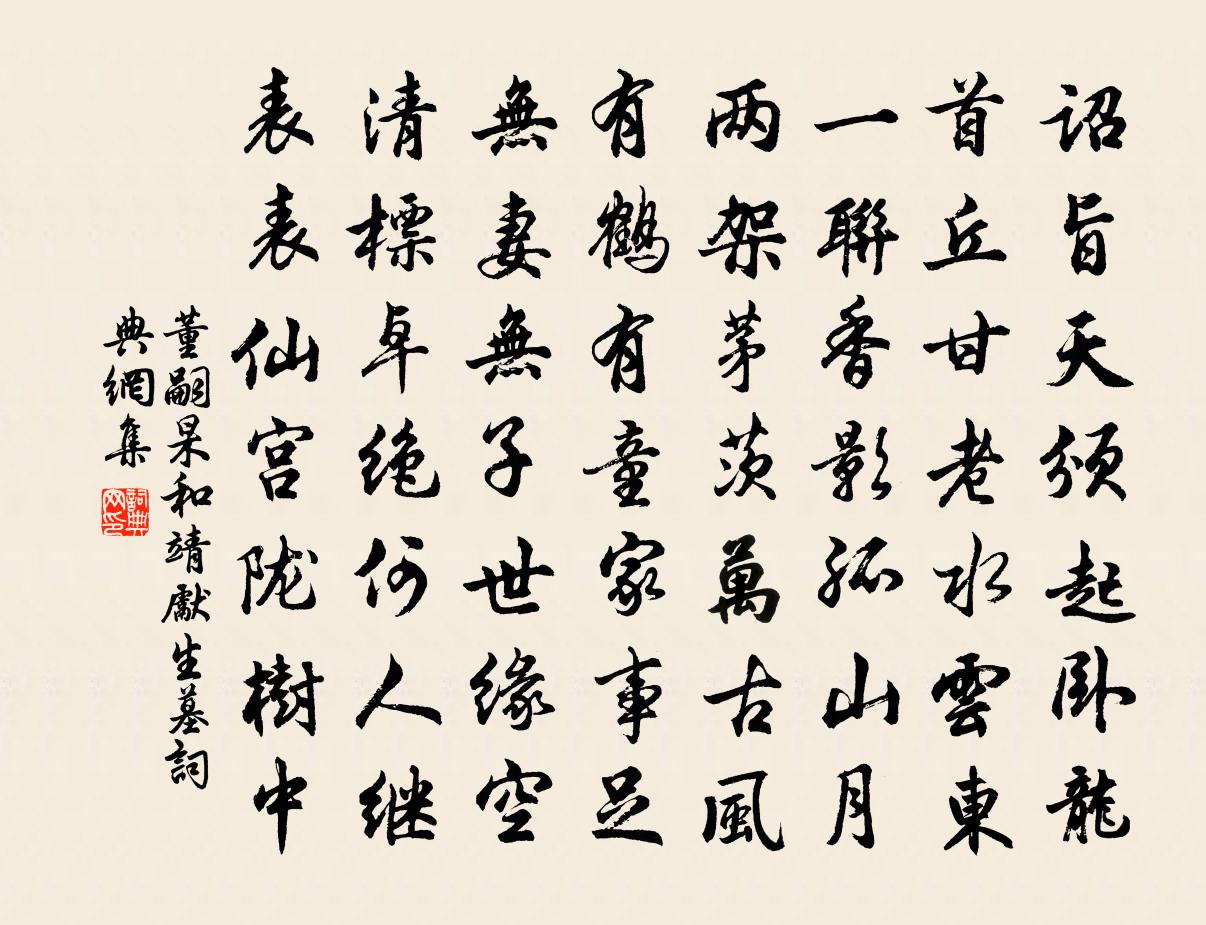 詔旨天頒起卧龍
首丘甘老水雲東
一聯香影孤山月
两架茅茨萬古風
有鶴有童家事足
無妻無子世缘空
清標卓绝何人继
表表仙宫陇樹中
董嗣杲和靖處生墓詞
典網集
詞典网印